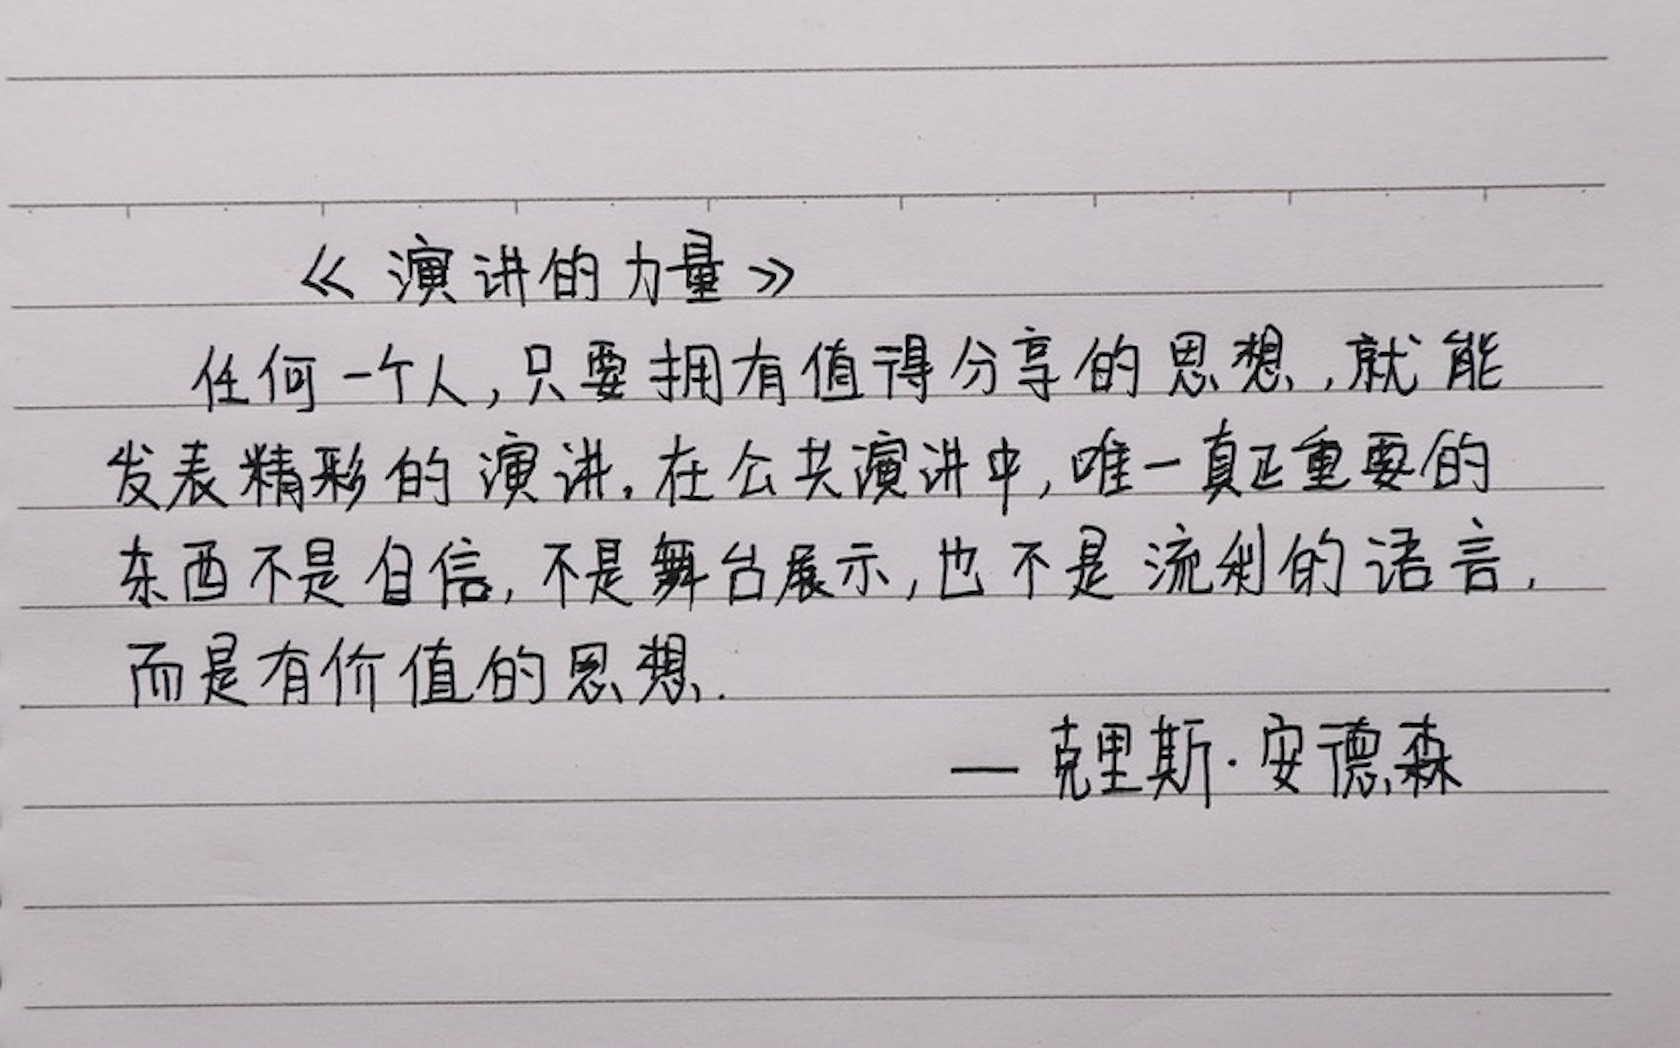 《演讲的力量》
任何一个人,只要拥有值得分享的思想,就能
发表精彩的演讲.在公共演讲中,唯一真正重要的
东西不是自信,不是舞台展示,也不是流利的语言,
而是有价值的思想.
— 克里斯·安德森